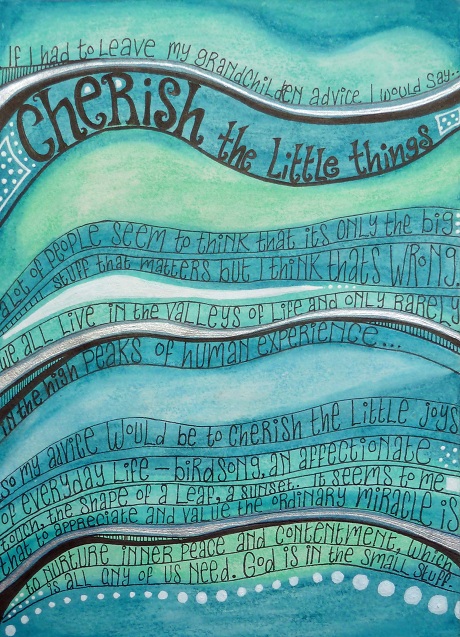 If I had to leave my grandchilden advice I would say...
Cherish the little things
a lot of people seem to think that its only the big
stuff that matters but I think thats wrong
we all live in the valleys of life and only rarely
in the high peaks of human experience...
so my avice would be to cherish the little joys
of everyday life – birdsong, an affectionate
touch, the shape of a leaf, a sunset. it seems to me
that to appreciate and value the ordinary miracle is
to nurture inner peace and contentment, which
is all any of us need. God is in the small stuff.